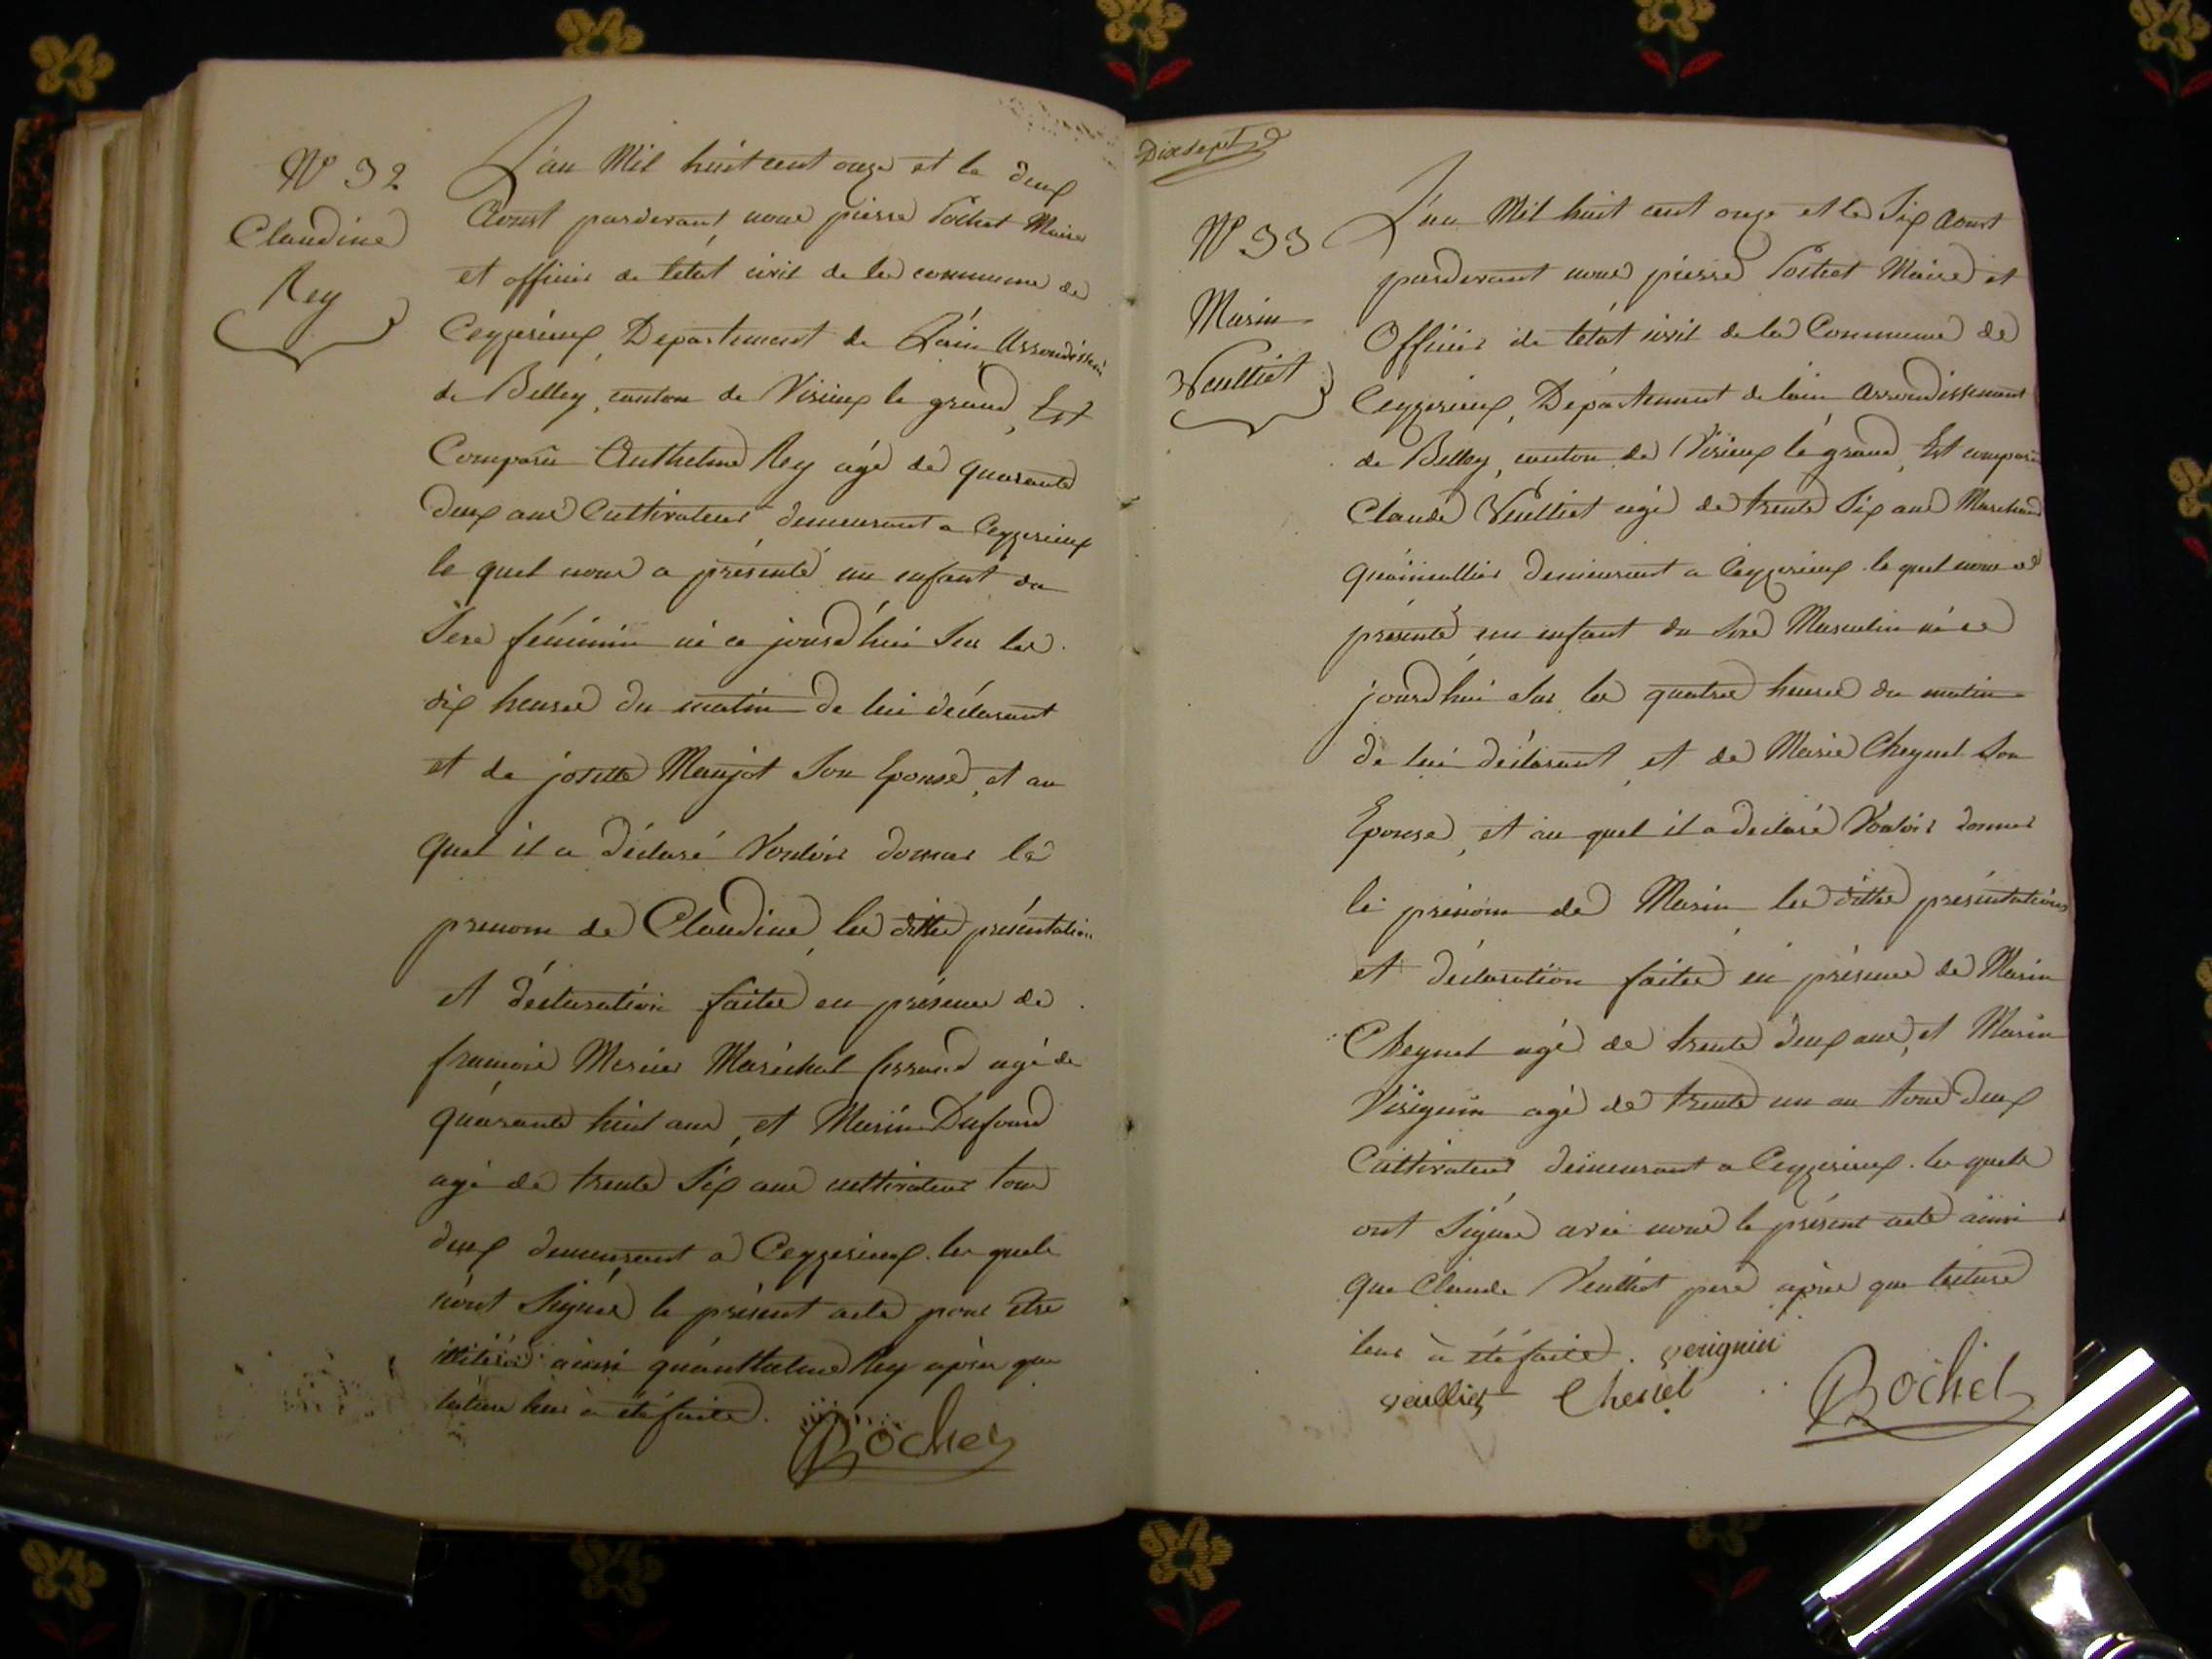 N° 32
Claudine
Rey
L'an Mil huit cent onze et le deux
Aoust pardevant nous pierre Pochet Maire
et officier de l'état civil de la commune de
Ceyzerieux, Departement de L'ain Arrondissem
de Belley, canton de Virieux le grand, Est
Comparu Anthelme Rey agé de quarante
deux ans Cultivateur demeurant a Ceyzerieux
le quel nous a présenté un enfant du
Sexe féminin né ce jourd'hui Sur les
dix heures du matin de lui déclarant
et de josette Maujot Son Epouse, et au
quel il a déclaré Vouloir donner le
prenom de Claudine, les dittes présentation
et déclaration faites en présence de
francois Mercier Maréchal ferrand agé de
quarante huit ans, et Marin Dufour
agé de trente Six ans cultivateur tous
deux demeurant a Ceyzerieux. les quels
n'ont Signés le présent acte pour être
illitéré ainsi qu'anthelme Rey après que
lecture leur a été faite.
Pochet
Dixsept
N° 33
Marin
Veulliet
L'an Mil huit cent onze et le Six Aoust
pardevant nous pierre Pochet Maire et
Officier de l'état civil de la Commune de
Ceyzerieux, Département de lain arrondissement
de Belley, canton de Virieux le grand, Est comparu
Claude Veulliet agé de trente Six ans Marchand
Quaincallier demeurant a Ceyzerieux. le quel nous a
présenté un enfant du Sexe Masculin né ce
jourd'hui Sur les quatres heures du matin
de lui déclarant, et de Marie Cheynel Son
Epouse, et au quel il a declaré Vouloir donner
le prénom de Marin, les dittes présentations
et déclaration faites en présence de Marin
Cheynel agé de trente deux ans, et Marin
Virignin agé de trente un an tous deux
Cultivateurs demeurant a Ceyzerieux. les quels
ont Signés avec nous le présent acte ainsi
que Claude Veulliet pere après que lecture
leur à été faite. verignin
veulliet Cheinel Pochet